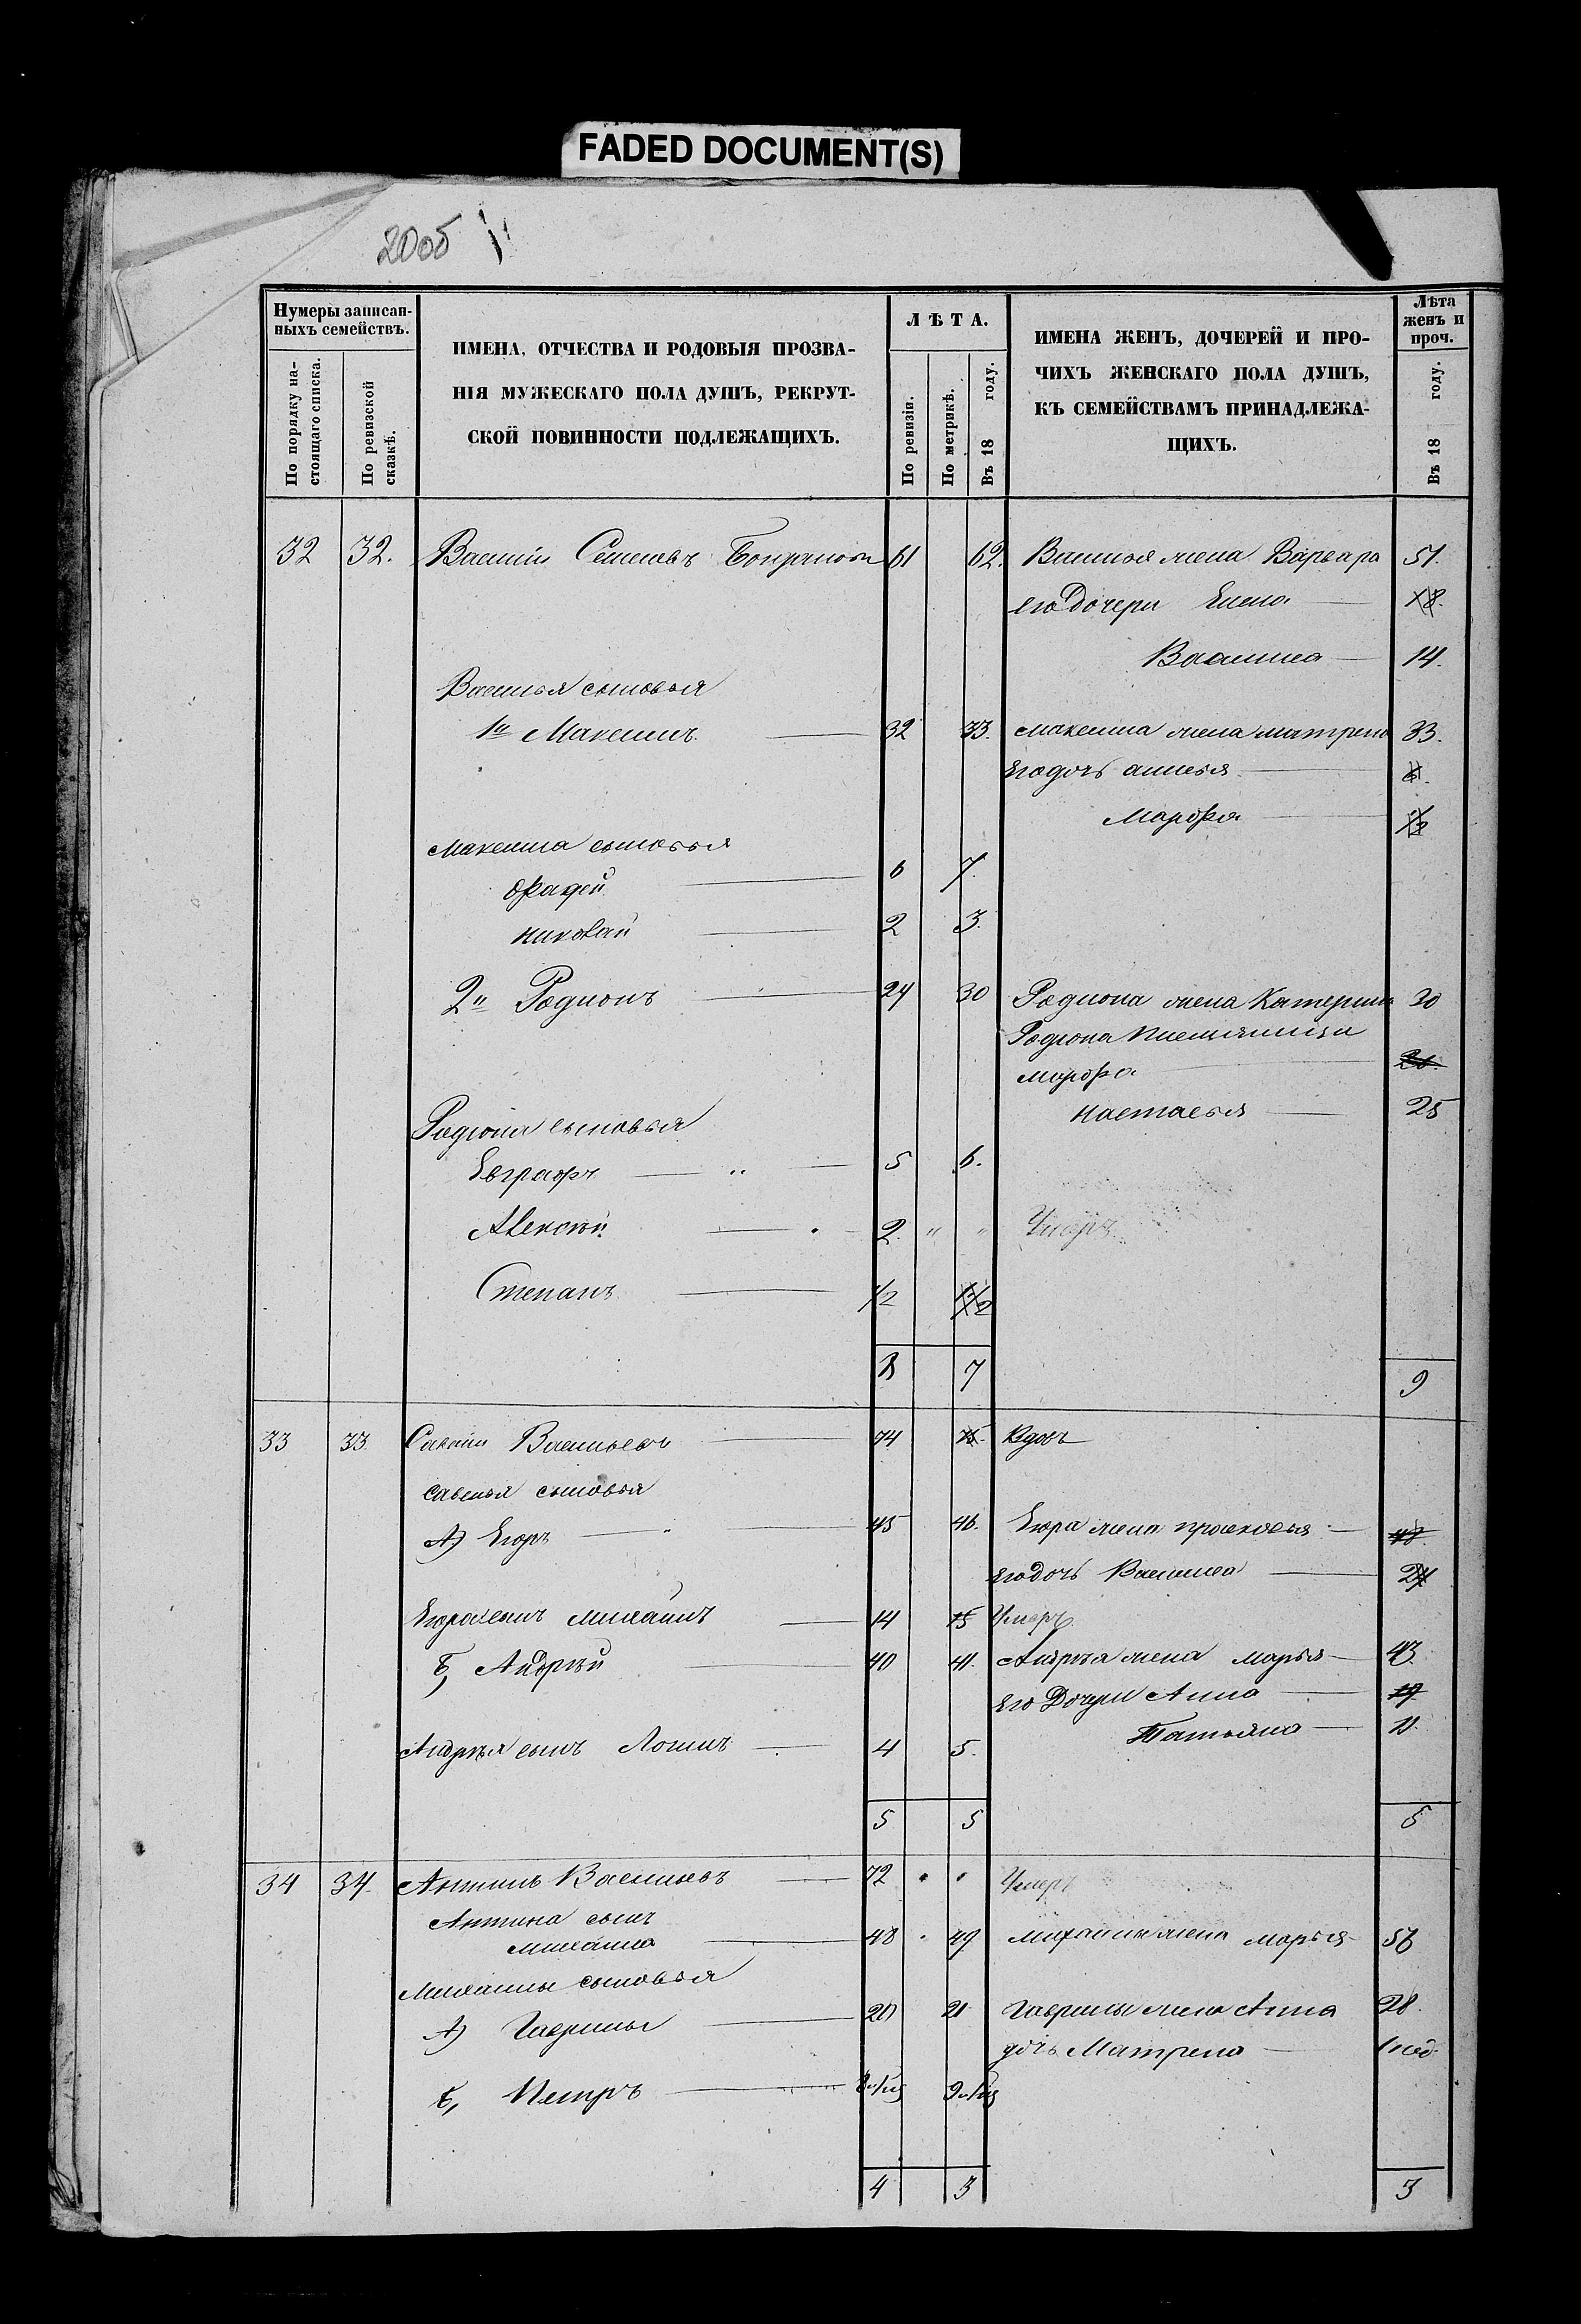 FADED DOCUMENT(S)
20об
Нумеры записан-
ныхъ семействъ.
По порядку на-
стоящаго списка.
По ревизской
сказкѣ.
ИМЕНА, ОТЧЕСТВА И РОДОВЫЯ ПРОЗВА-
НІЯ МУЖЕСКАГО ПОЛА ДУШЪ, РЕКРУТ-
СКОЙ ПОВИННОСТИ ПОДЛЕЖАЩИХЪ.
Л Ѣ Т А.
По ревизіи.
По метрикѣ.
Въ 18 году.
ИМЕНА ЖЕНЪ, ДОЧЕРЕЙ И ПРО-
ЧИХЪ ЖЕНСКАГО ПОЛА ДУШЪ,
КЪ СЕМЕЙСТВАМЪ ПРИНАДЛЕЖА-
ЩИХЪ.
Лѣта
женъ и
проч.
Въ 18 году.
32 32. Василій Семеновъ 61 62. Василья жена Варвара 51.
его дочери Елена 18.
Василиса 14.
Василья сыновья
1й Максимъ 32 33. Максима жена Матрена 33.
Его дочь
Марфа
Максима сыновья
Фадей 6 7.
Николай 2 3.
2й Родионъ 29 30 Родиона жена Катерина 30
Родиона племянницы
Марфа 26.
Настасья 25
Родиона сыновья
Евграфъ 5 6.
Алексѣй 2 " " Умеръ
Степанъ 1/2 1 1/2
8 7 9
33 33. Савелій Васильевъ 74 75. Вдовъ
Савелья сыновья
А) Егоръ 45 46. Егора жена Просковья 48.
Его дочь Василиса 24
Егора сынъ Михаилъ 14 15 Умеръ
Б, Андрѣй 40 41. Андрѣя жена Марья 43.
Его Дочери Анна 19
Татьяна 11.
Андрѣя сынъ Логинъ 4 5.
5 5 5
34 34. Антипъ Васильевъ 72 Умеръ
Антипа сынъ
Михайла 48 49 Михайлы жена Марья 56
Михайлы сыновья
А) Гаврилы 20 21 Гаврилы жена Анна 28.
дочь Матрена 1 нед.
Б, Петръ
4 3 3